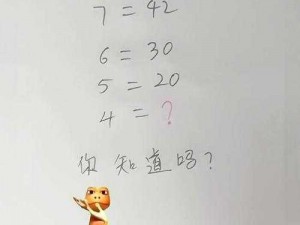 7 = 42
6 = 30
5 = 20
4 = ?
你知道吗？